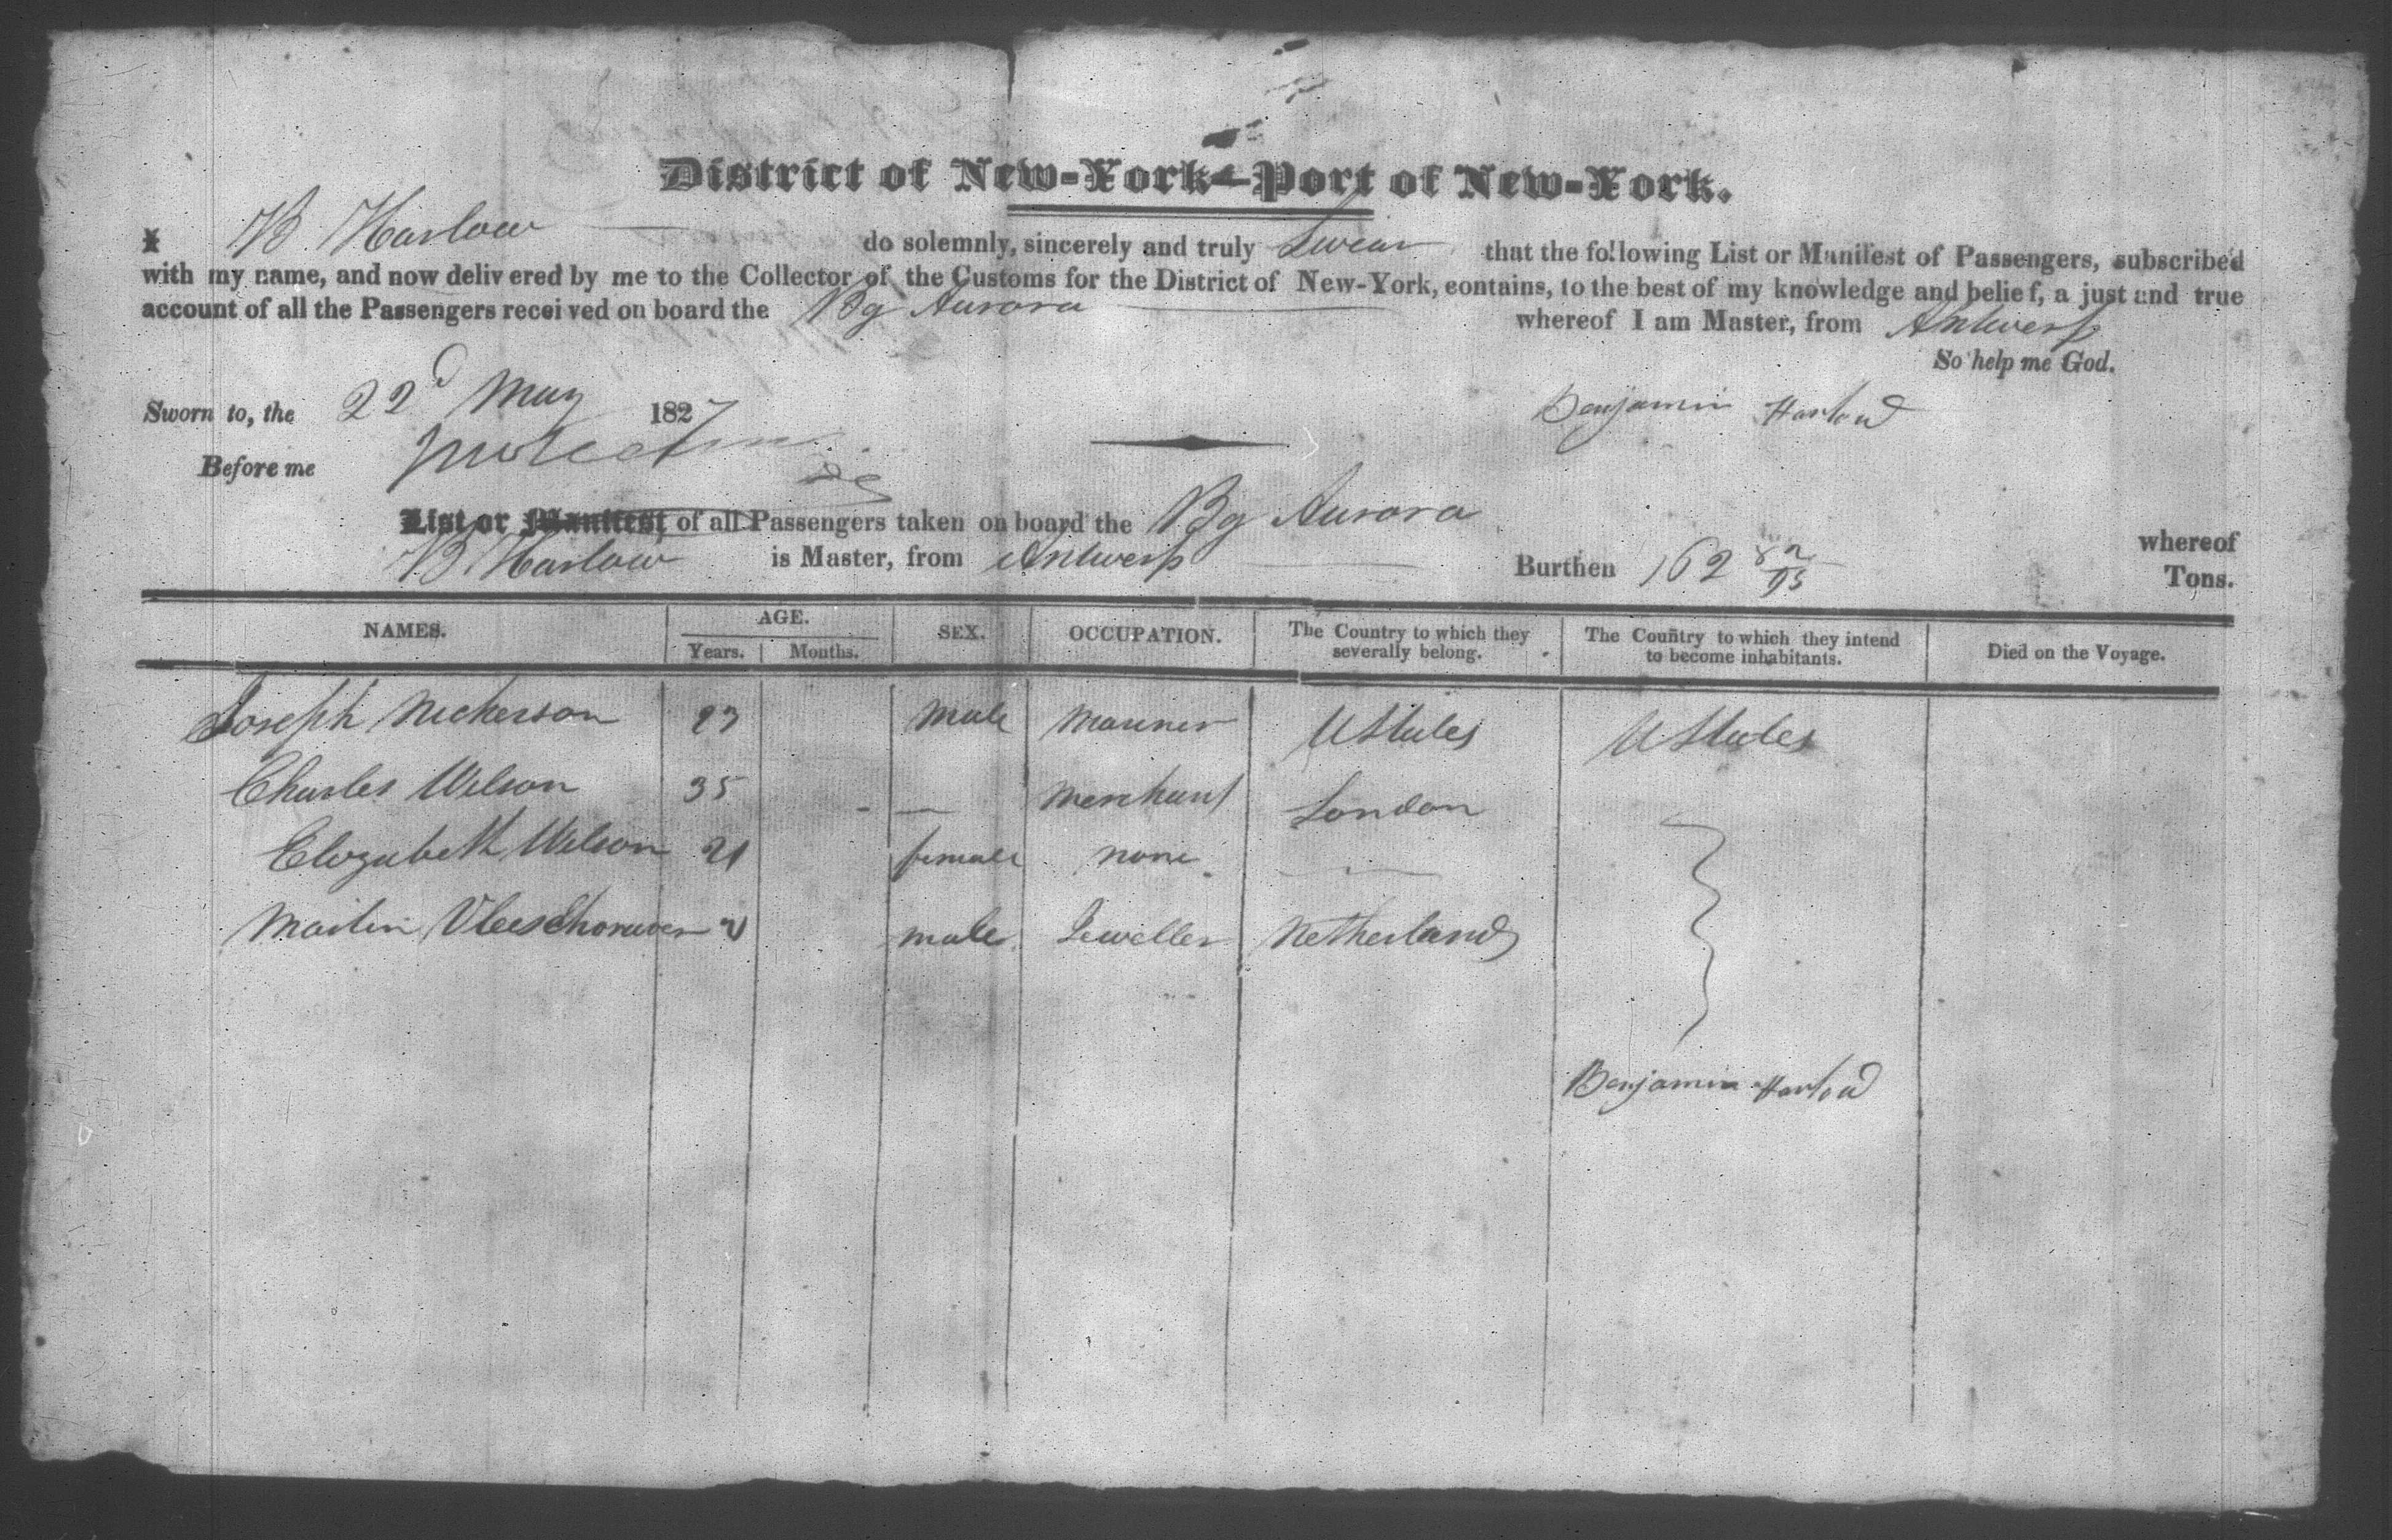 District of New-York—Port of New-York.
I B. Harlow do solemnly, sincerely and truly Swear that the following List or Manifest of Passengers, subscribed
with my name, and now delivered by me to the Collector of the Customs for the District of New-York, contains, to the best of my knowledge and belief, a just and true
account of all the Passengers received on board the Bg Aurora whereof I am Master, from Antwerp
So help me God.
Sworn to, the 22d May 1827
Benjamin Harlow
Before me
List or Manifest, of all Passengers taken on board the Bg Aurora whereof
B Harlow is Master, from Antwerp Burthen 162 82/95 Tons.
NAMES. AGE. SEX. OCCUPATION. The Country to which they severally belong. The Country to which they intend to become inhabitants. Died on the Voyage.
Years. Months.
Joseph Nickerson 23 male mariner U States U States
Charles Wilson 35 — merchant London
Elizabeth Wilson 21 female none —
Martin 21 male Jeweller Netherlands
Benjamin Harlow